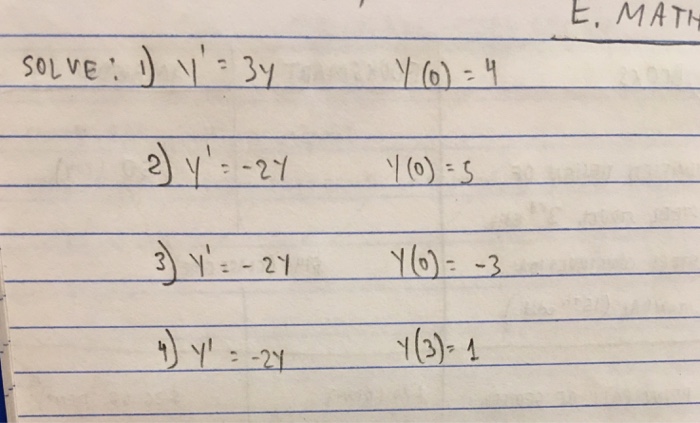 E. MATH
SOLVE: 1) Y' = 3Y Y(0) = 4
2) Y' = -2Y Y(0) = 5
3) Y' = -2Y Y(0) = -3
4) Y' = -2Y Y(3) = 1